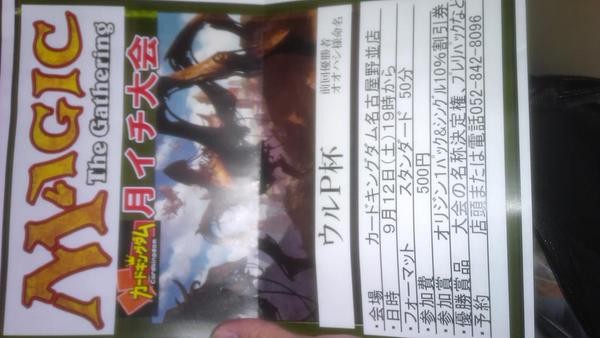 MAGIC
The Gathering
月イチ大会
カードキングダム
前回優勝者
オオハシ様命名
ウルP杯
・会場 カードキングダム名古屋野並店
・日時 9月12日(土)19時から
・フォーマット スタンダード 50分
・参加費 500円
・参加賞 オリジン1パック&シングル10%割引券
・優勝賞品 大会の名称決定権、プレリパックなど
・予約 店頭または電話052-842-8096